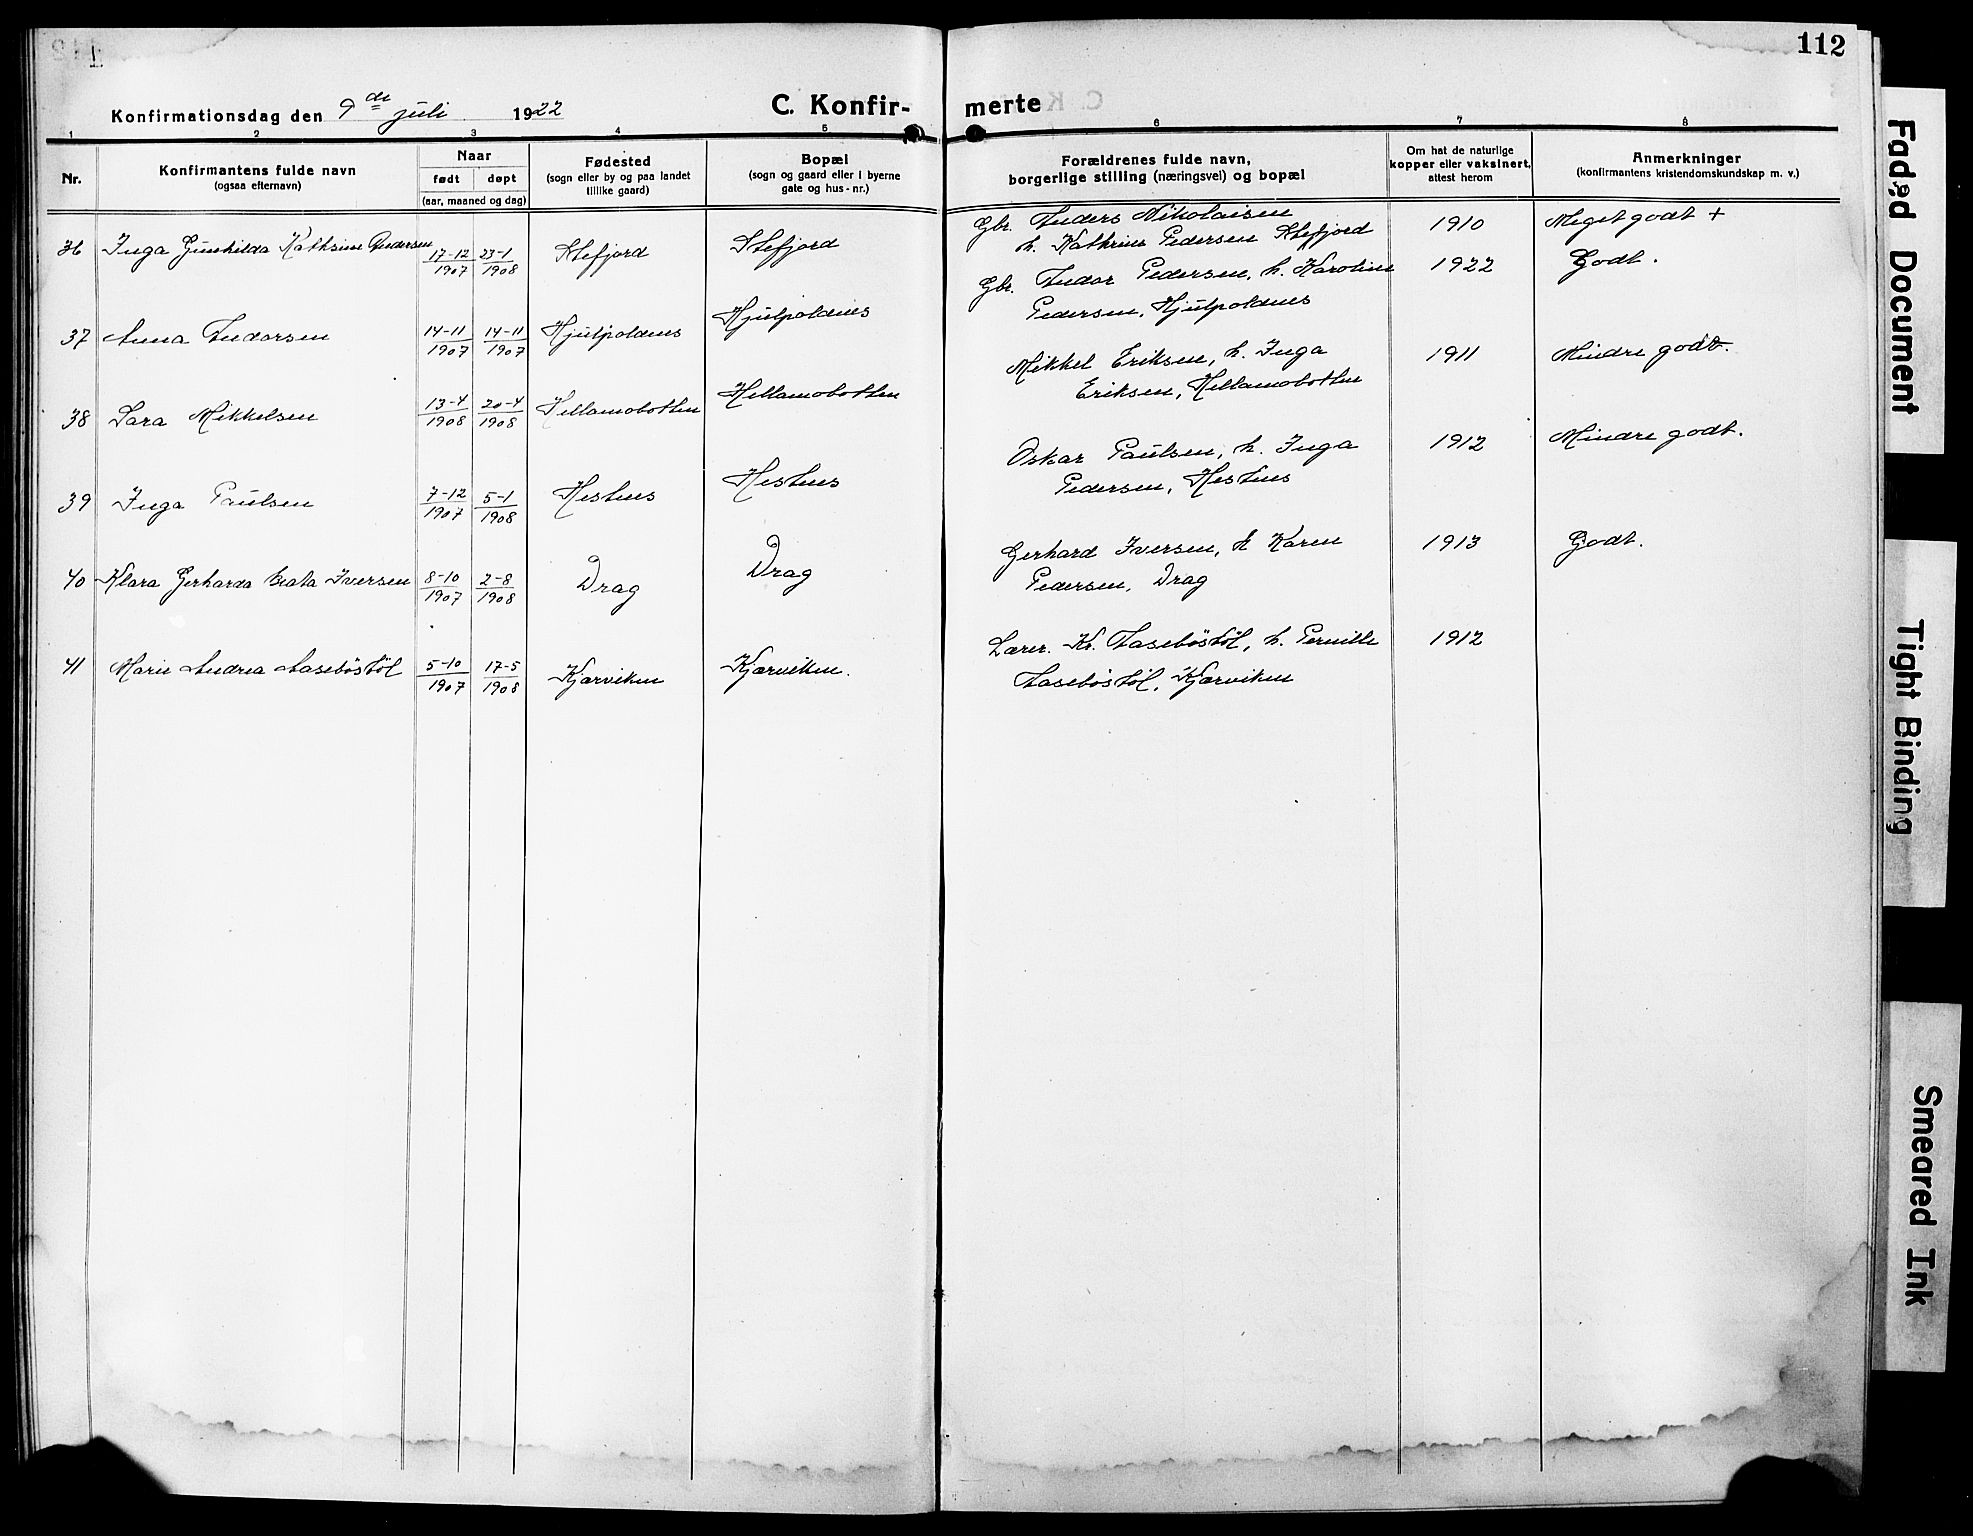 112
Konfirmationsdag den 9de juli 1922
C. Konfir-
merte
1 2 3 4 5 6 7 8
Nr.
Konfirmantens fulde navn
(ogsaa efternavn)
Naar
født døpt
(aar, maaned og dag)
Fødested
(sogn eller by og paa landet
tillike gaard)
Bopæl
(sogn og gaard eller i byerne
gate og hus-nr.)
Forældrenes fulde navn,
borgerlige stilling (næringsvei) og bopæl
Om hat de naturlige
kopper eller vaksinert,
attest herom
Anmerkninger
(konfirmantens kristendomskundskap m. v.)
36 Inga Gunhilda Kathrine Andersen 17-12 1907 23-1 1908 Stefjord Stefjord
Gbr. Anders Nikolaisen
h. Kathrine Pedersen Stefjord 1910 Meget godt +
37 Anna Andorsen 14-11 1907 14-11 1907 Hjulpoldnes Hjulpoldnes
Gbr. Andor Pedersen, h. Karoline
Pedersen, Hjulpoldnes 1922 Godt.
38 Sara Mikkelsen 13-4 1908 20-4 1908 Hellamobotten Hellamobotten
Mikkel Eriksen, h. Inga
Eriksen, Hellamobotten 1911 Mindre godt.
39 Inga Paulsen 7-12 1907 5-1 1908 Hestnes Hestnes
Oskar Paulsen, h. Inga
Pedersen, Hestnes 1912 Mindre godt.
40 Klara Gerharda Beata Iversen 8-10 1907 2-8 1908 Drag Drag
Gerhard Iversen, h Karen
Pedersen, Drag 1913 Godt.
41 Marie Andrea Aasebøstøl 5-10 1907 17-5 1908 Kjørviken Kjørviken.
Lærer. Kr. Aasebøstøl, h. Pernille
Aasebøstøl, Kjørviken 1912
Faded Document
Tight Binding
Smeared Ink